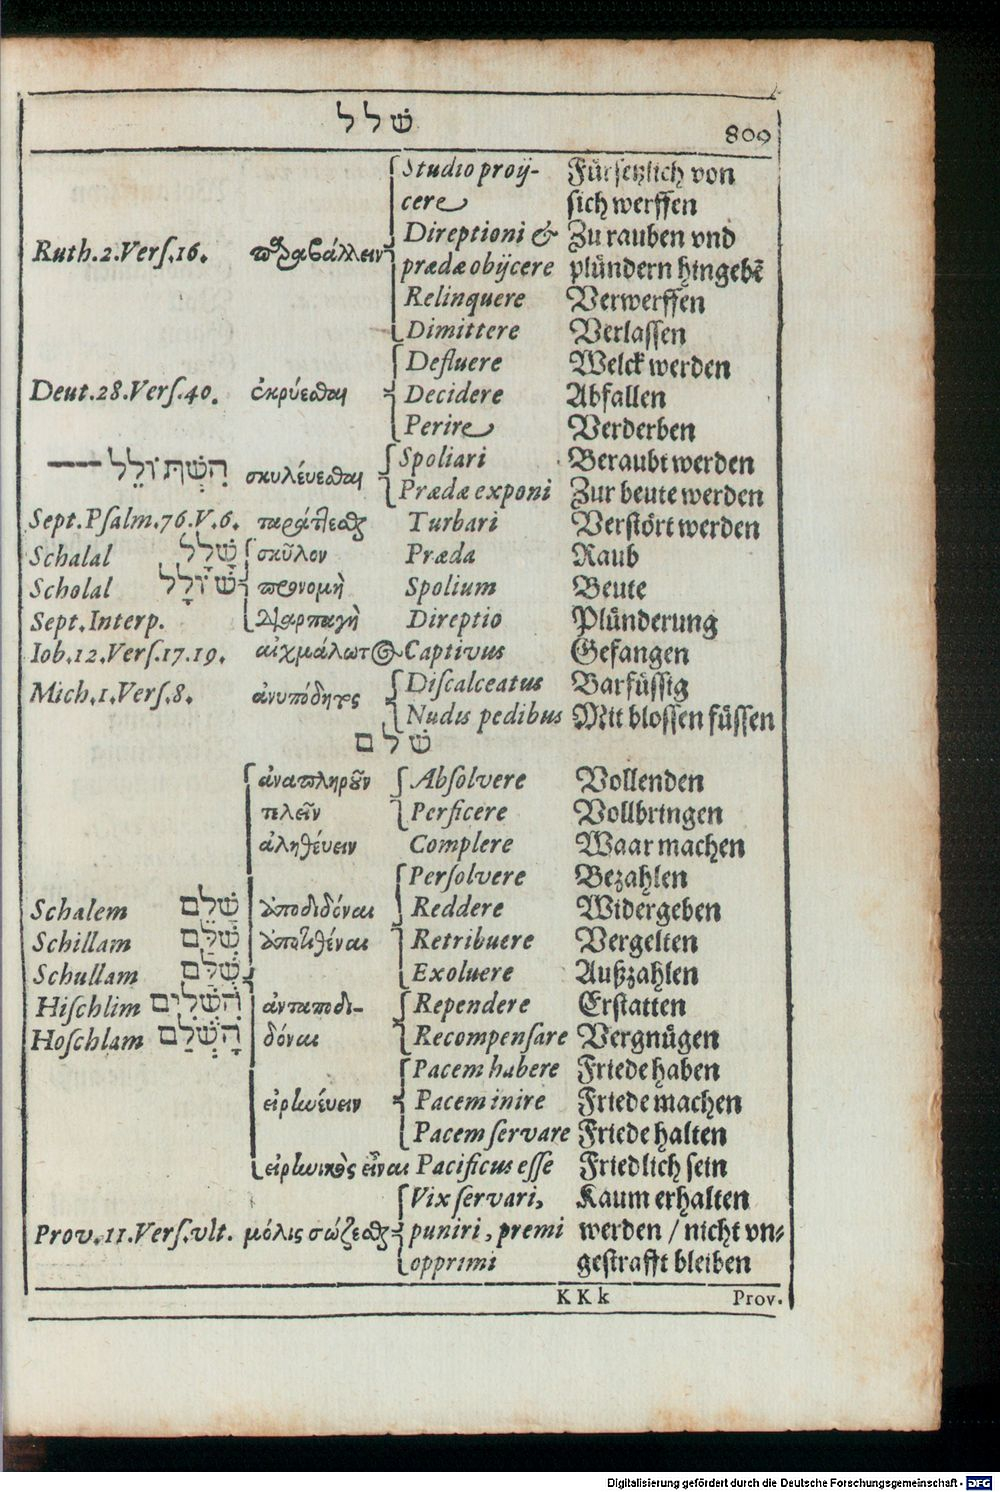 שׁלל
809
Studio proij- Fürsetzlich von
cere sich werffen
Direptioni & Zu rauben vnd
Ruth.2.Verſ.16. παραβάλλειν prædæ obijcere plündern hingebẽ
Relinquere Verwerffen
Dimittere Verlassen
Defluere Welck werden
Deut.28.Verſ.40. ἐκρύεσθαι Decidere Abfallen
Perire Verderben
הִשְׁתּוֹלֵל σκυλέυεσθαι Spoliari Beraubt werden
Prædæ exponi Zur beute werden
Sept.Pſalm.76.V.6. ταράτlεσθ Turbari Verstört werden
Schalal שָׁלָל σκῦλον Præda Raub
Scholal שׁוֹלָל προνομὴ Spolium Beute
Sept.Interp. Διαρπαγὴ Direptio Plünderung
Iob.12.Verſ.17.19. αἰχμάλωτος Captivus Gefangen
Mich.1.Verſ.8. ἀνυπόδητος Diſcalceatus Barfüssig
Nudis pedibus Mit blossen füssen
שׁלם
ἀναπληροῦν Abſolvere Vollenden
πλεῖν Perficere Vollbringen
ἀληθέυειν Complere Waar machen
Perſolvere Bezahlen
Schalem שָׁלֵם ἀποδιδόναι Reddere Widergeben
Schillam שִׁלַּם ἀποτιθέναι Retribuere Vergelten
Schullam שֻׁלַּם Exoluere Außzahlen
Hiſchlim הִשְׁלִים ἀνταποδι- Rependere Erstatten
Hoſchlam הָשְׁלַם δόναι Recompenſare Vergnügen
Pacem habere Friede haben
εἰρηνέυειν Pacem inire Friede machen
Pacem ſervare Friede halten
εἰρηνικὸς εἶναι Pacificus eſſe Friedlich sein
Vix ſervari, Kaum erhalten
Prov.11.Verſ.vlt. μόλις σώζεσθ puniri, premi werden / nicht vn-
opprimi gestrafft bleiben
KKk Prov.
Digitalisierung gefördert durch die Deutsche Forschungsgemeinschaft - DFG